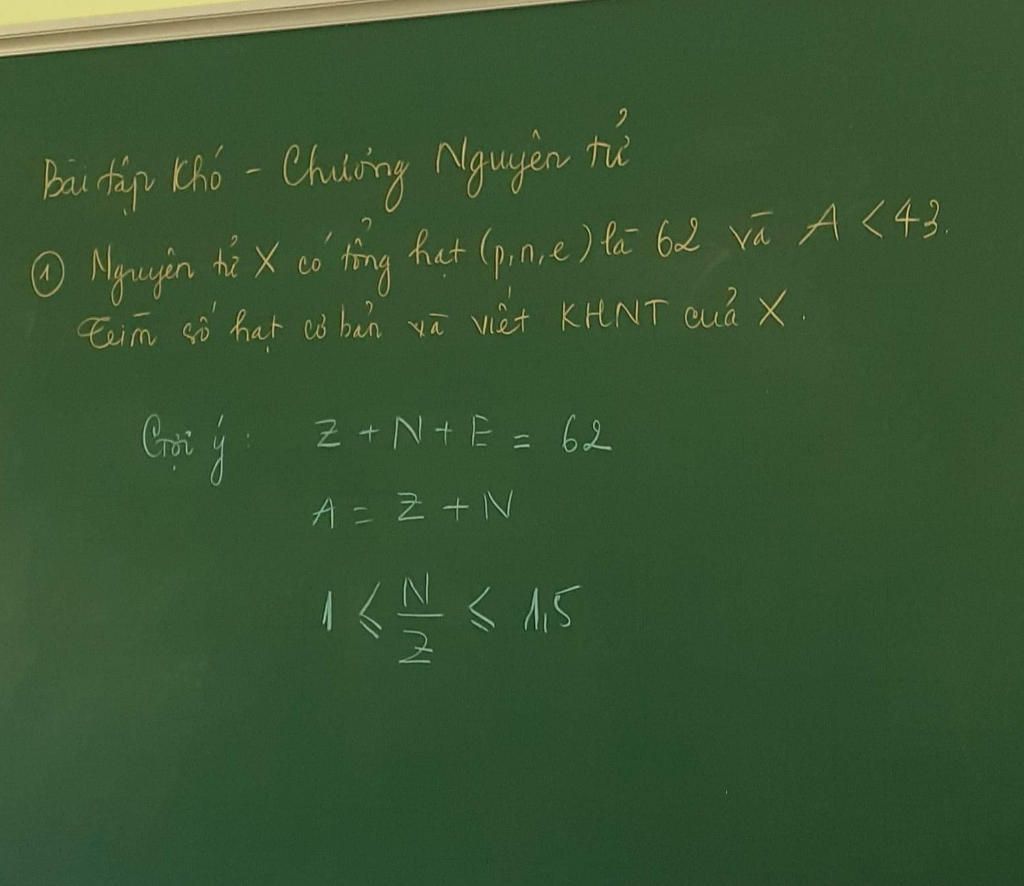 Bài tập khó - Chương Nguyên tử
① Nguyên tử X có tổng hạt (p,n,e) là 62 và A < 43.
Tìm số hạt cơ bản và viết KHNT của X.
Gợi ý: Z + N + E = 62
A = Z + N
1 ≤ N/Z ≤ 1,5